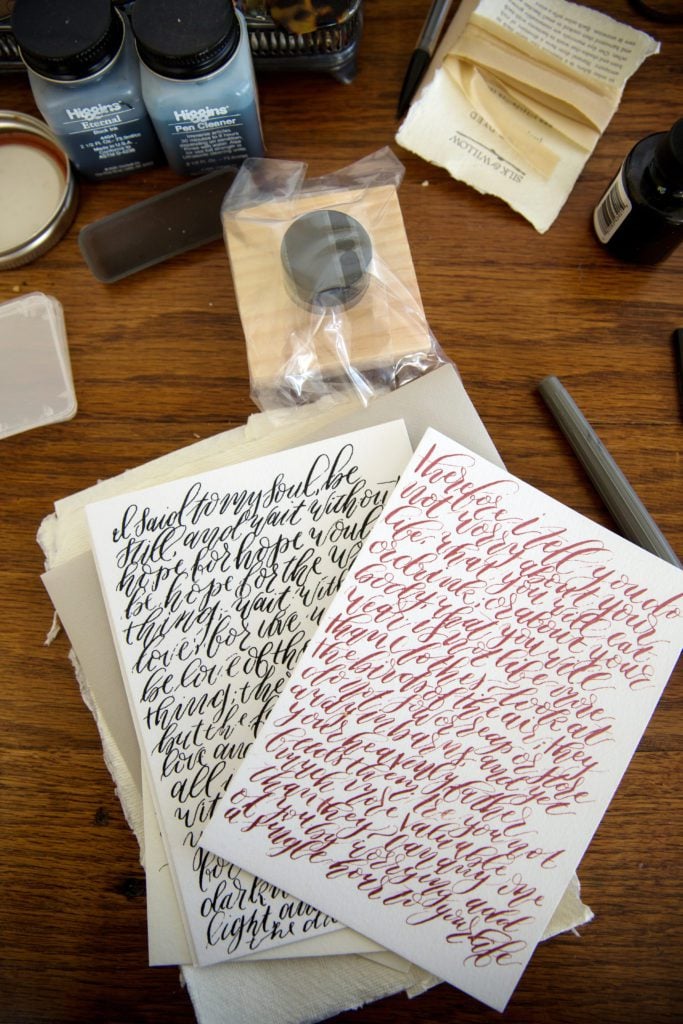 Higgins
Eternal
Black Ink
44041
Made in U.S.A.
Higgins
Pen Cleaner
SILK & WILLOW
I said to my soul, be
still, and wait without
hope for hope woul
be hope for the wr
thing, wait with
love, for love w
be love of the
thing; the
but the f
love and
all i
wit
for
darkn
light an
the da
Therefore I tell you do
not worry about your
life, what you will eat
or drink; or about your
body, what you will
wear. Is not life more
than clothes? Look at
the birds of the air; they
do not sow or reap or store
away in barns, and yet
your heavenly father
feeds them. Are you not
much more valuable
than they? Can any one
of you by worrying add
a single hour to your life